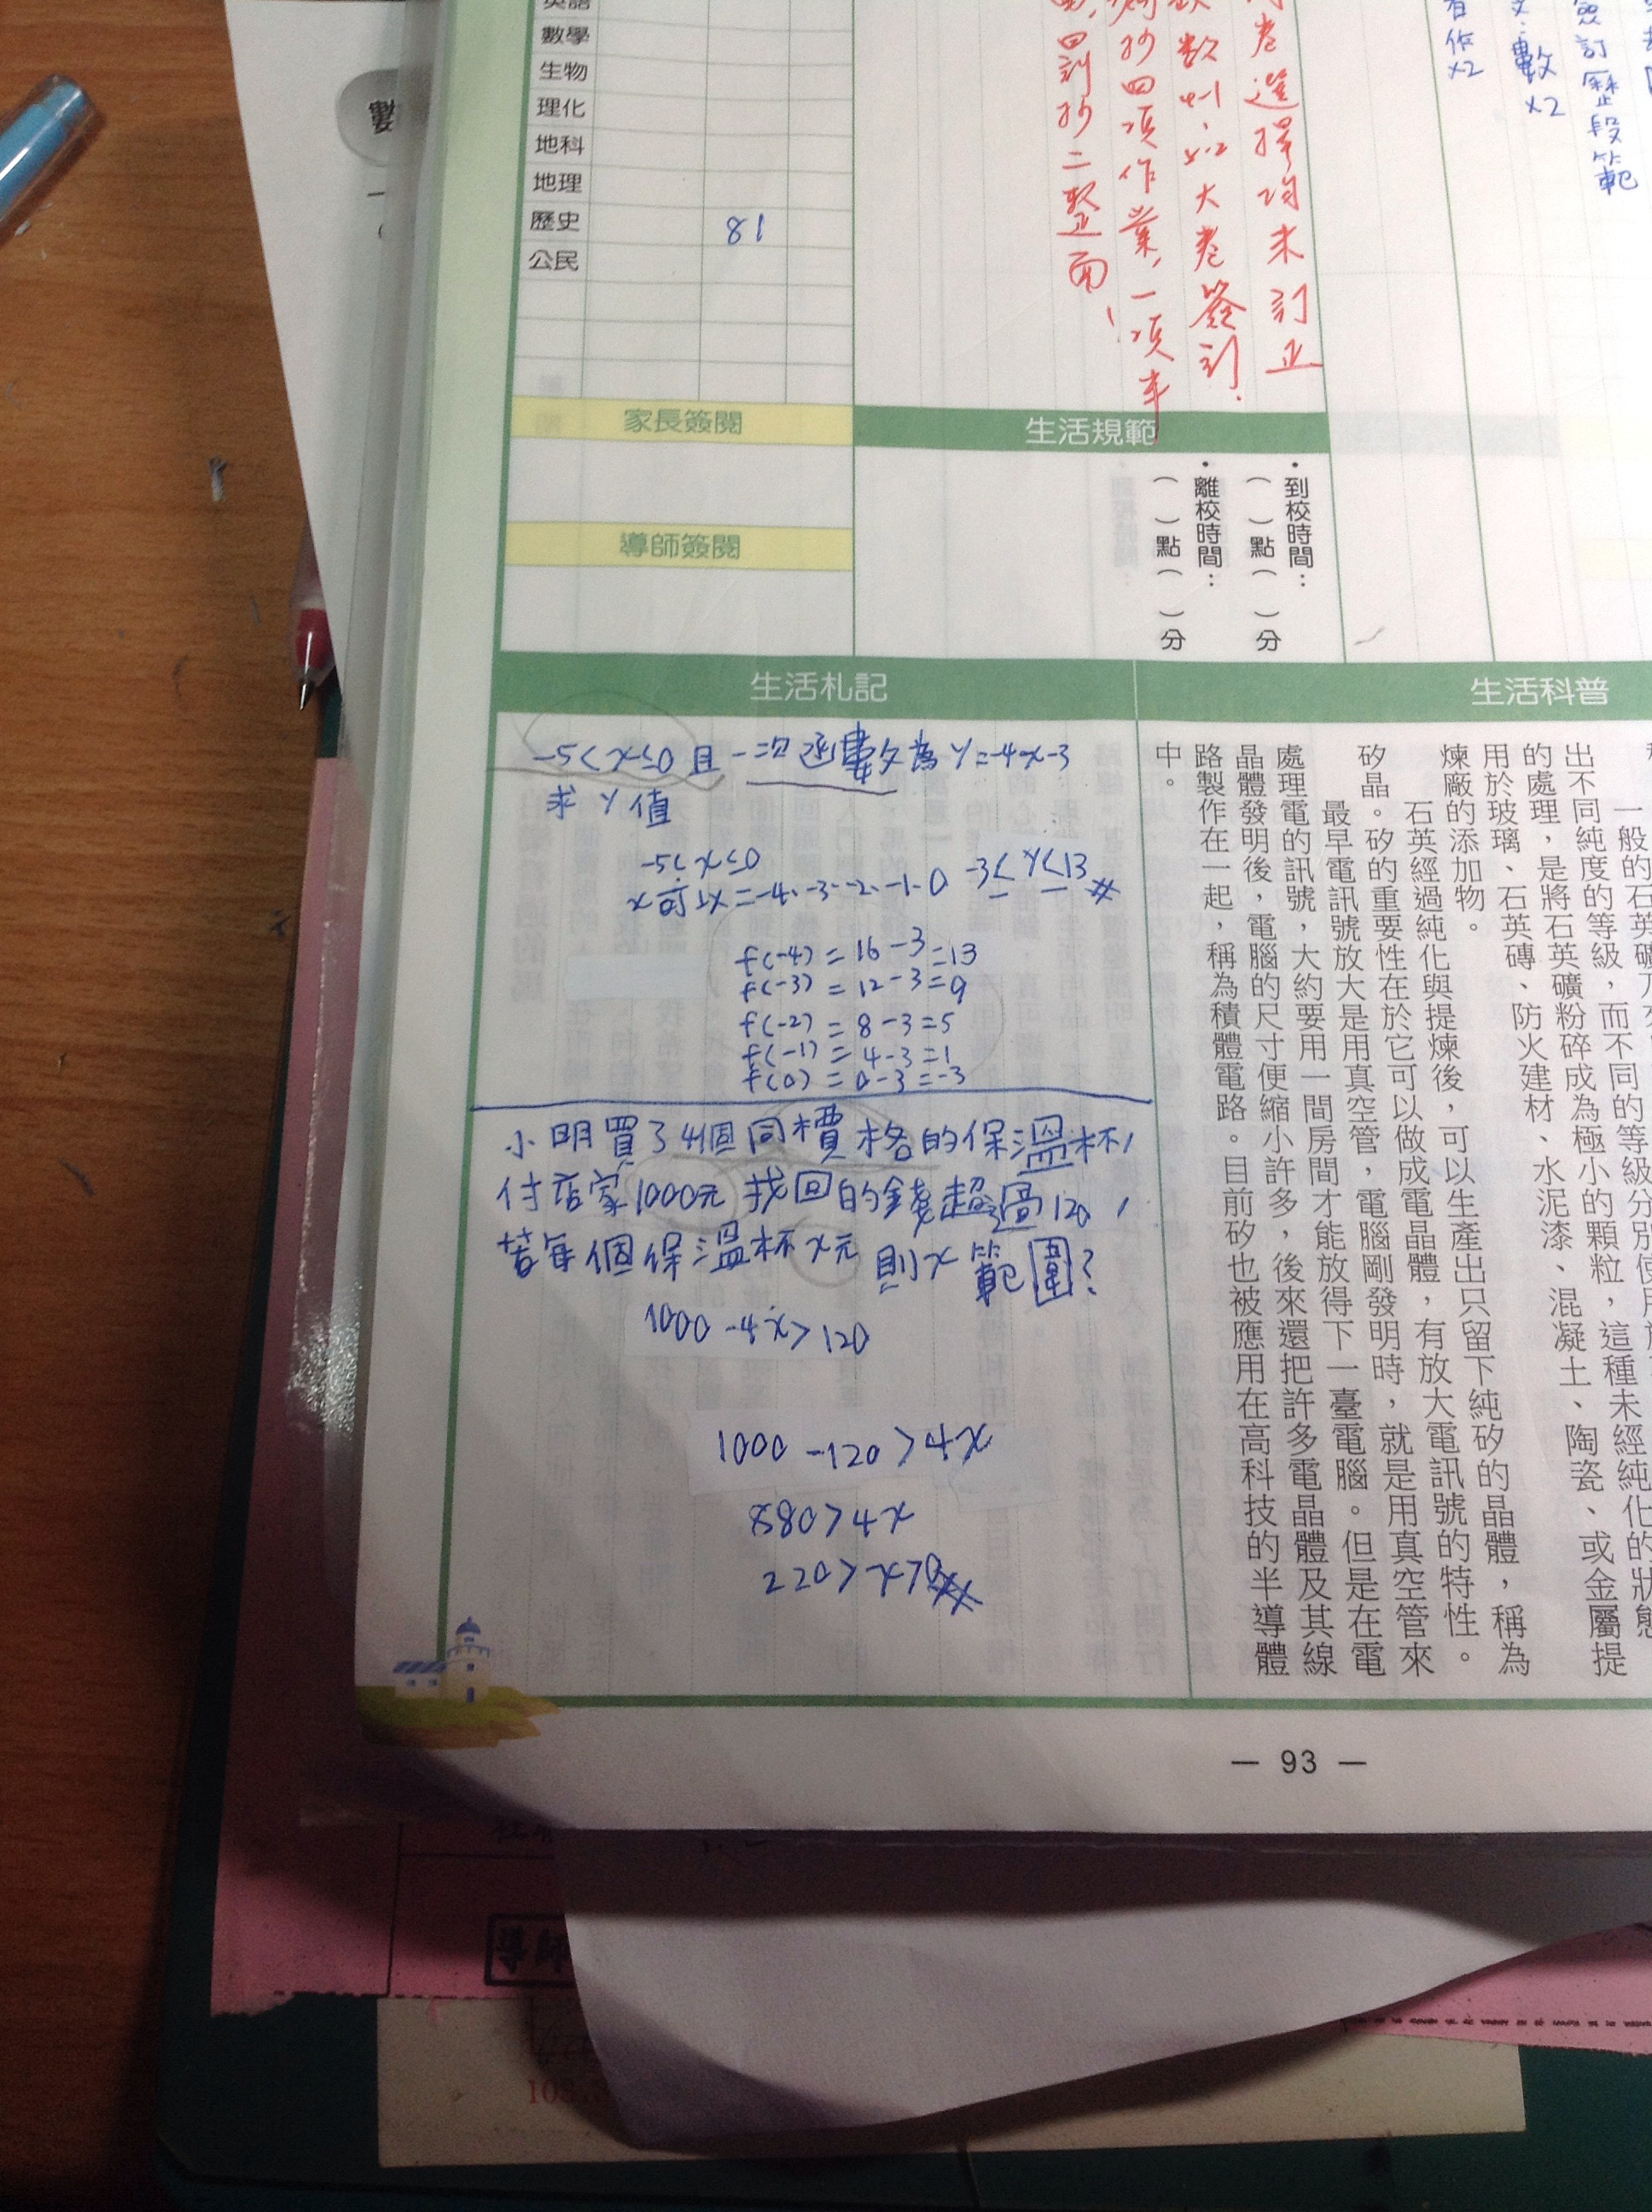 數學
生物
理化
地科
地理
歷史 81
公民
家長簽閱
導師簽閱
生活規範
・到校時間：
（ ）點（ ）分
・離校時間：
（ ）點（ ）分
卷選擇均未訂正
大卷簽到.
抄四項作業,一項半
罰抄二整面!
作x2
數x2
生活札記
-5<x≤0 且一次函數為 y=-4x-3
求 y 值
-5<x≤0
x 可以=-4、-3、-2、-1、0 -3≤y≤13 #
f(-4) = 16-3=13
f(-3) = 12-3=9
f(-2) = 8-3=5
f(-1) = 4-3=1
f(0) = 0-3=-3
小明買了4個同價格的保溫杯,
付店家1000元 找回的錢超過120,
若每個保溫杯x元 則x範圍?
1000-4x>120
1000-120>4x
880>4x
220>x>0 #
生活科普
出不同純度的等級，而不同的等級分別使用
的處理，是將石英礦粉碎成為極小的顆粒，這種未經純化的狀態
用於玻璃、石英磚、防火建材、水泥漆、混凝土、陶瓷、或金屬提
煉廠的添加物。
石英經過純化與提煉後，可以生產出只留下純矽的晶體，稱為
矽晶。矽的重要性在於它可以做成電晶體，有放大電訊號的特性。
最早電訊號放大是用真空管，電腦剛發明時，就是用真空管來
處理電的訊號，大約要用一間房間才能放得下一臺電腦。但是在電
晶體發明後，電腦的尺寸便縮小許多，後來還把許多電晶體及其線
路製作在一起，稱為積體電路。目前矽也被應用在高科技的半導體
中。
— 93 —
導師